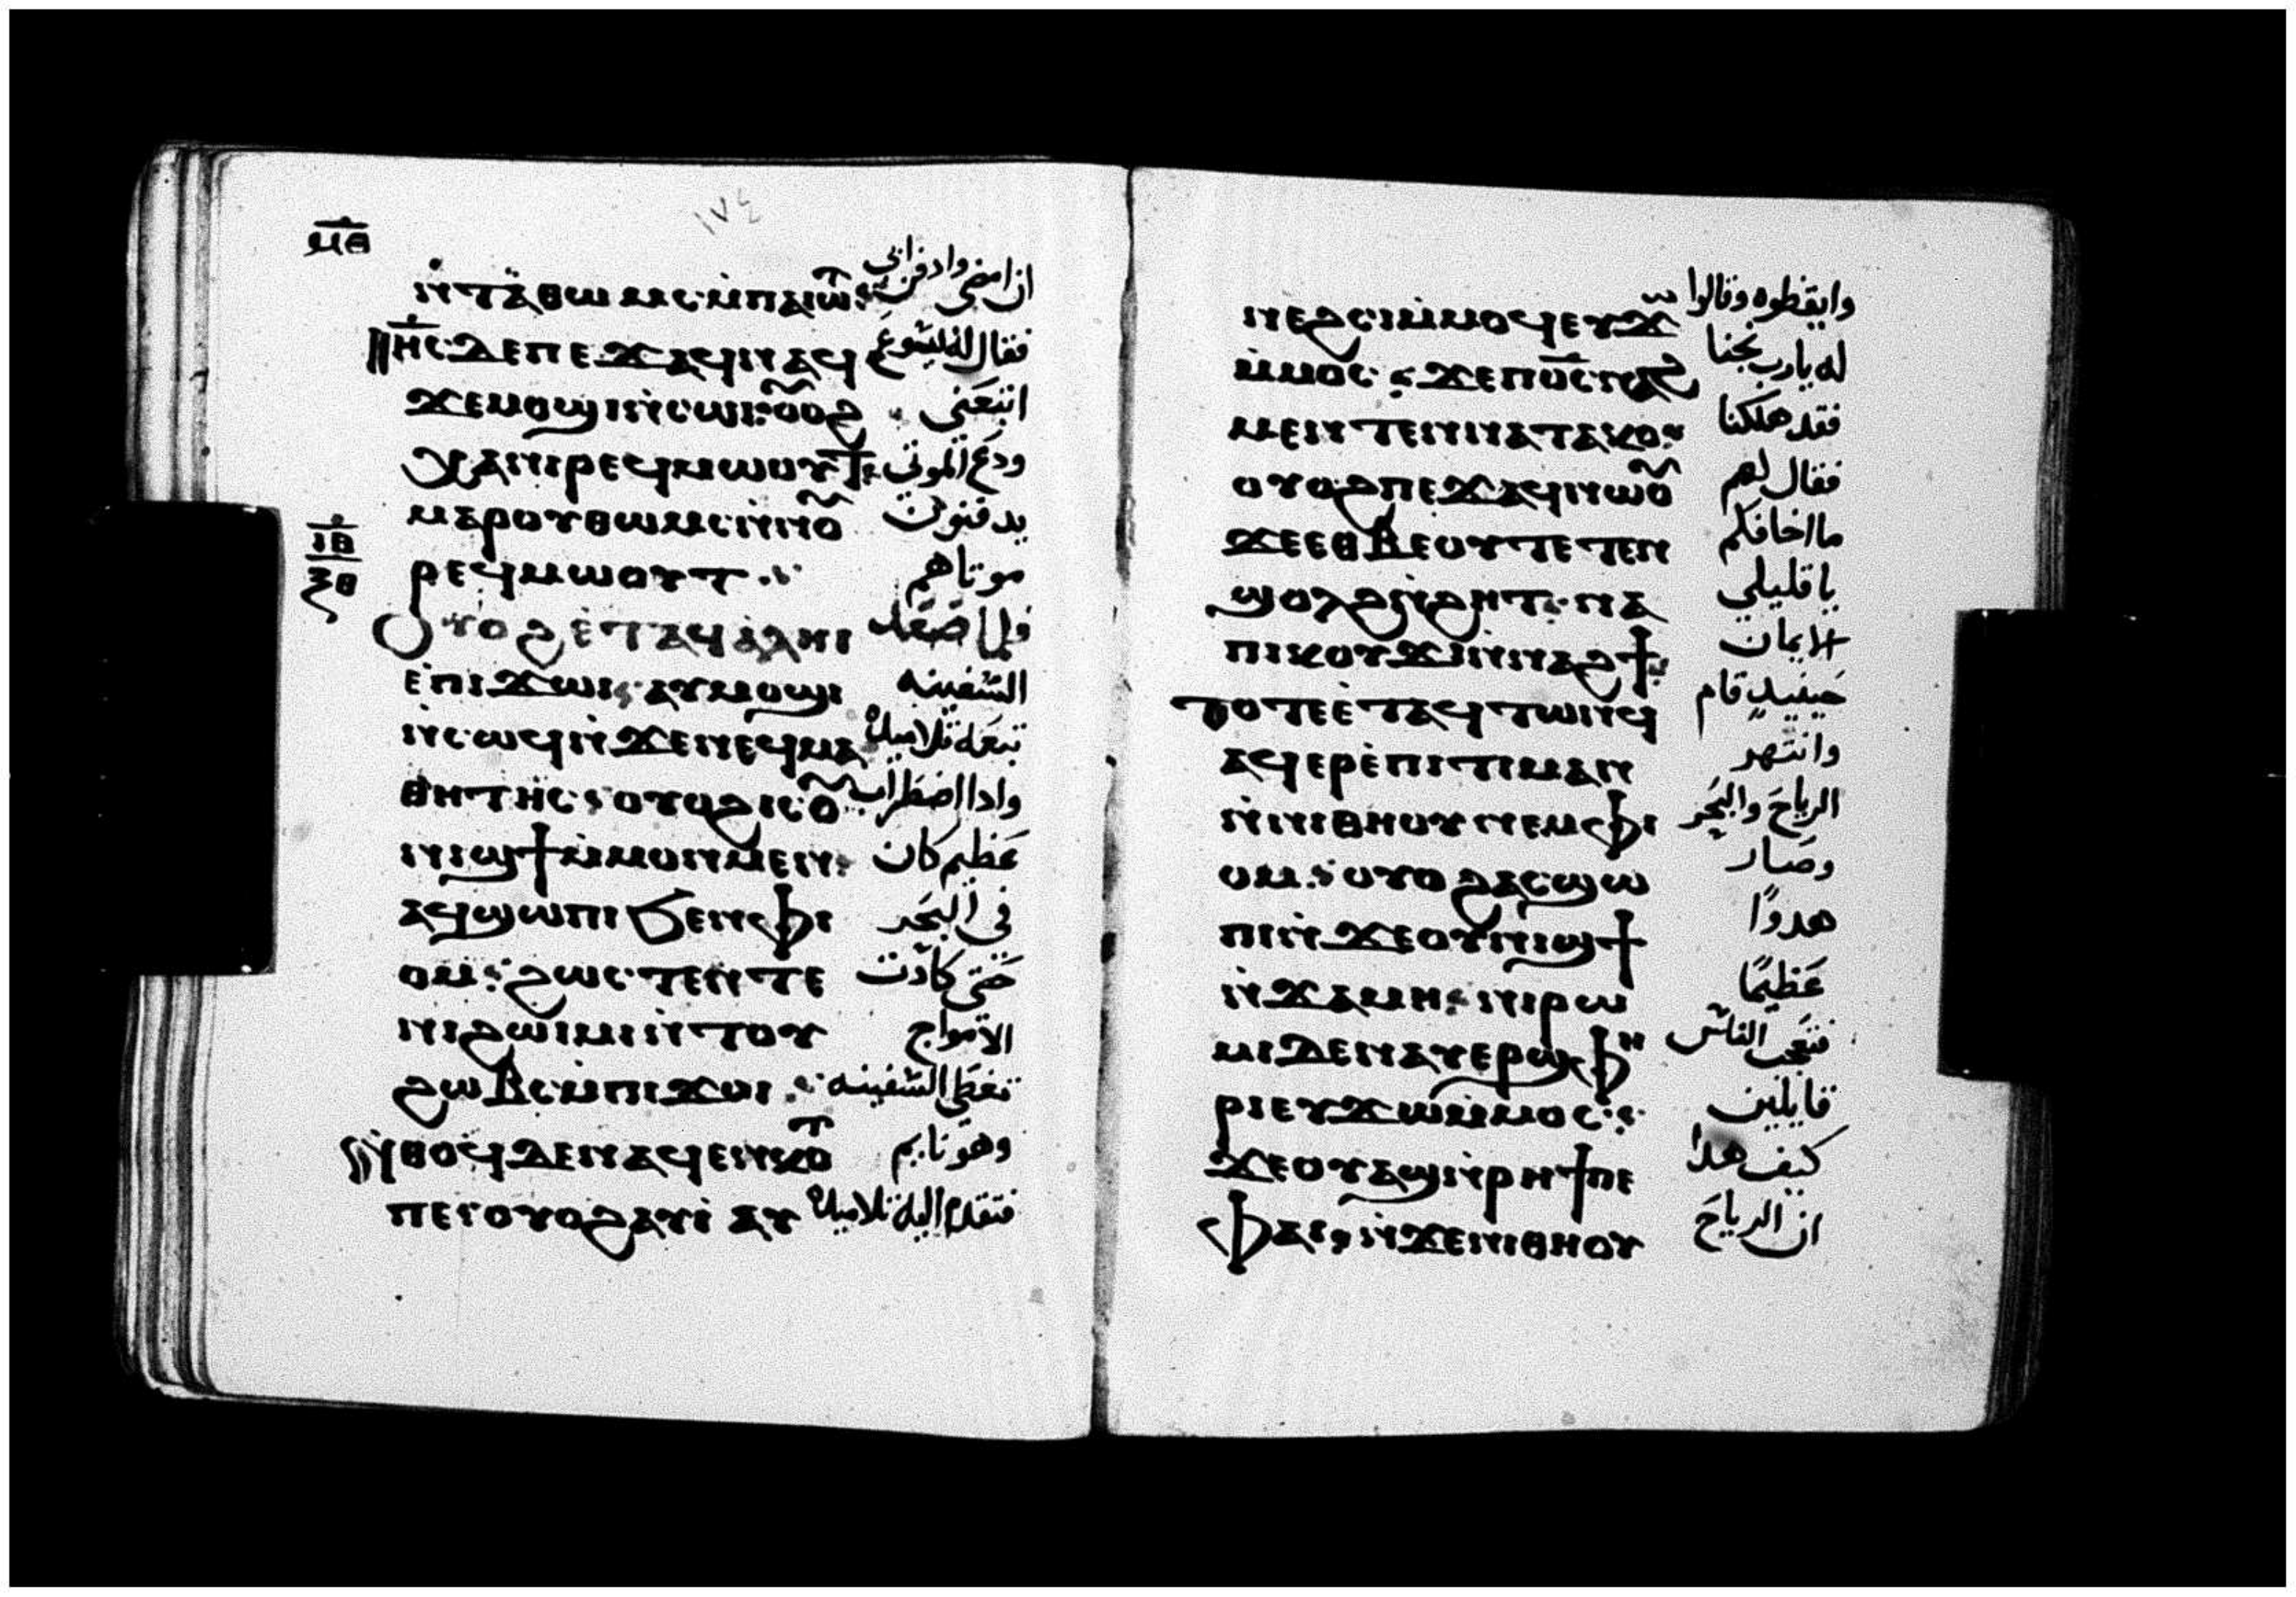 ١٧٤
ⲙ̅ⲑ̅
ⲛ̇ⲧⲁ̀ⲑⲱⲙⲥ ⲙ̇ⲡⲁⲓⲱ̅ⲧ ان امضى وادفن ابي
ⲓⲏ̅ⲥ ⲇⲉ ⲡⲉϫⲁϥ ⲛⲁϥ فقال له ايسوع
ϫⲉ ⲙⲟϣⲓ ⲛ̇ⲥⲱⲓ ⲟⲩⲟϩ اتبعنى
ⲭⲁ ⲛⲓⲣⲉϥⲙⲱⲟⲩⲧ ودع الموتى
ⲙⲁⲣⲟⲩⲑⲱⲙⲥ ⲛ̇ⲛⲟⲩ يدفنون
ⲣⲉϥⲙⲱⲟⲩⲧ موتاهم
ⲓ̅ⲑ̅
ⲝⲑ
ⲟⲩⲟϩ ⲉ̇ⲧⲁϥⲁ̀ⲗⲏⲓ فلما صعد
ⲉ̇ⲡⲓϫⲱⲓ ⲁⲩⲙⲟϣⲓ السفينه
ⲛ̇ⲥⲱϥ ⲛ̇ϫⲉ ⲛⲉϥⲙⲁ تبعه تلاميذه
ⲑⲏⲧⲏⲥ ⲟⲩⲟϩ ⲓⲥ ⲟⲩ واذا اضطراب
ⲛⲓϣϯ ⲙ̇ⲙⲟⲛⲙⲉⲛ عظيم كان
ⲁϥϣⲱⲡⲓ ϧⲉⲛ ⲫⲓ فى البحر
ⲟⲙ ϩⲱⲥⲧⲉ ⲛ̇ⲧⲉ حتى كادت
ⲛⲓϩⲱⲓⲙⲓ ⲛ̇ⲧⲟⲩ الامواج
ϩⲱⲃⲥ ⲙ̇ⲡⲓϫⲟⲓ تغطى السفينه
ⲛ̇ⲑⲟϥ ⲇⲉ ⲛⲁϥⲉⲛⲕⲟⲧ وهو نايم
ⲡⲉ ⲟⲩⲟϩ ⲁⲩⲓ̇ ⲁⲩ فتقدم اليه تلاميذه
ⲛⲉϩⲥⲓ ⲙ̇ⲙⲟϥ ⲉⲩϫⲱ وايقظوه وقالوا
ⲙ̇ⲙⲟⲥ ϫⲉ ⲡⲟ̅ⲥ ⲛⲁϩ له يارب نجنا
ⲙⲉⲛ ⲧⲉⲛⲛⲁⲧⲁⲕⲟ فقد هلكنا
ⲟⲩⲟϩ ⲡⲉϫⲁϥ ⲛⲱⲟⲩ فقال لهم
ϫⲉ ⲉⲑⲃⲉⲟⲩ ⲧⲉⲧⲉⲛ ما اخافكم
ϣⲟⲗϩ ⲛ̇ϩⲏⲧ ⲛⲁ يا قليلي
ⲡⲓⲕⲟⲩϫⲓ ⲛ̇ⲛⲁϩϯ الايمان
ⲧⲟⲧⲉ ⲉ̇ⲧⲁϥⲧⲱⲛϥ حينيذٍ قام
ⲁϥⲉⲣⲉ̇ⲡⲓⲧⲓⲙⲁⲛ وانتهر
ⲛ̇ⲛⲓⲑⲏⲟⲩ ⲛⲉⲙ ⲫⲓ الرياح والبحر
ⲟⲙ ⲟⲩⲟϩ ⲁⲥϣⲱ وصار
ⲡⲓ ⲛ̇ϫⲉ ⲟⲩⲛⲓϣϯ هدوًا
ⲛ̇ϫⲁⲙⲏ ⲛⲓⲣⲱ عظيمًا
ⲙⲓ ⲇⲉ ⲛⲁⲩⲉⲣϣⲫⲏ فتعجب الناس
ⲣⲓ ⲉⲩϫⲱ ⲙ̇ⲙⲟⲥ قايلين
ϫⲉ ⲟⲩⲁϣ ⲛ̇ⲣⲏϯ ⲡⲉ كيف هذا
ⲫⲁⲓ ⲛ̇ϫⲉ ⲛⲓⲑⲏⲟⲩ ان الرياح